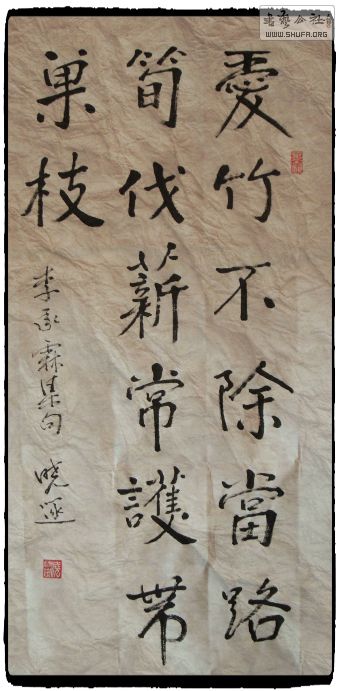 愛竹不除當路
筍伐薪常護帶
巢枝
李承霖集句 曉逐
書藝公社
WWW.SHUFA.ORG